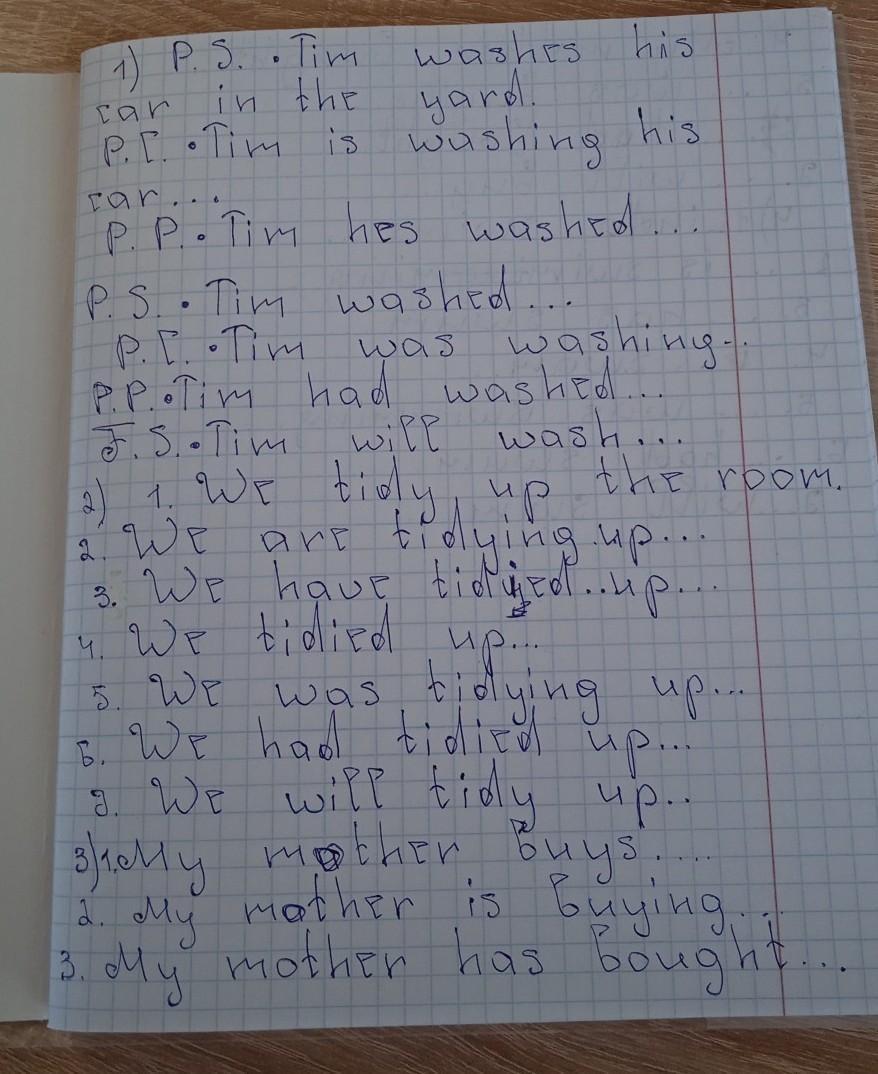 1) P. S. • Tim washes his
car in the yard.
P.C. • Tim is washing his
car...
P. P. • Tim hes washed...
P.S. • Tim washed...
P.C. • Tim was washing...
P.P. • Tim had washed...
F.S. • Tim will wash...
2) 1. We tidy up the room.
2. We are tidying up...
3. We have tidied..up...
4. We tidied up...
5. We was tidying up...
6. We had tidied up...
7. We will tidy up..
3) 1. My mother buys....
2. My mother is buying...
3. My mother has bought...